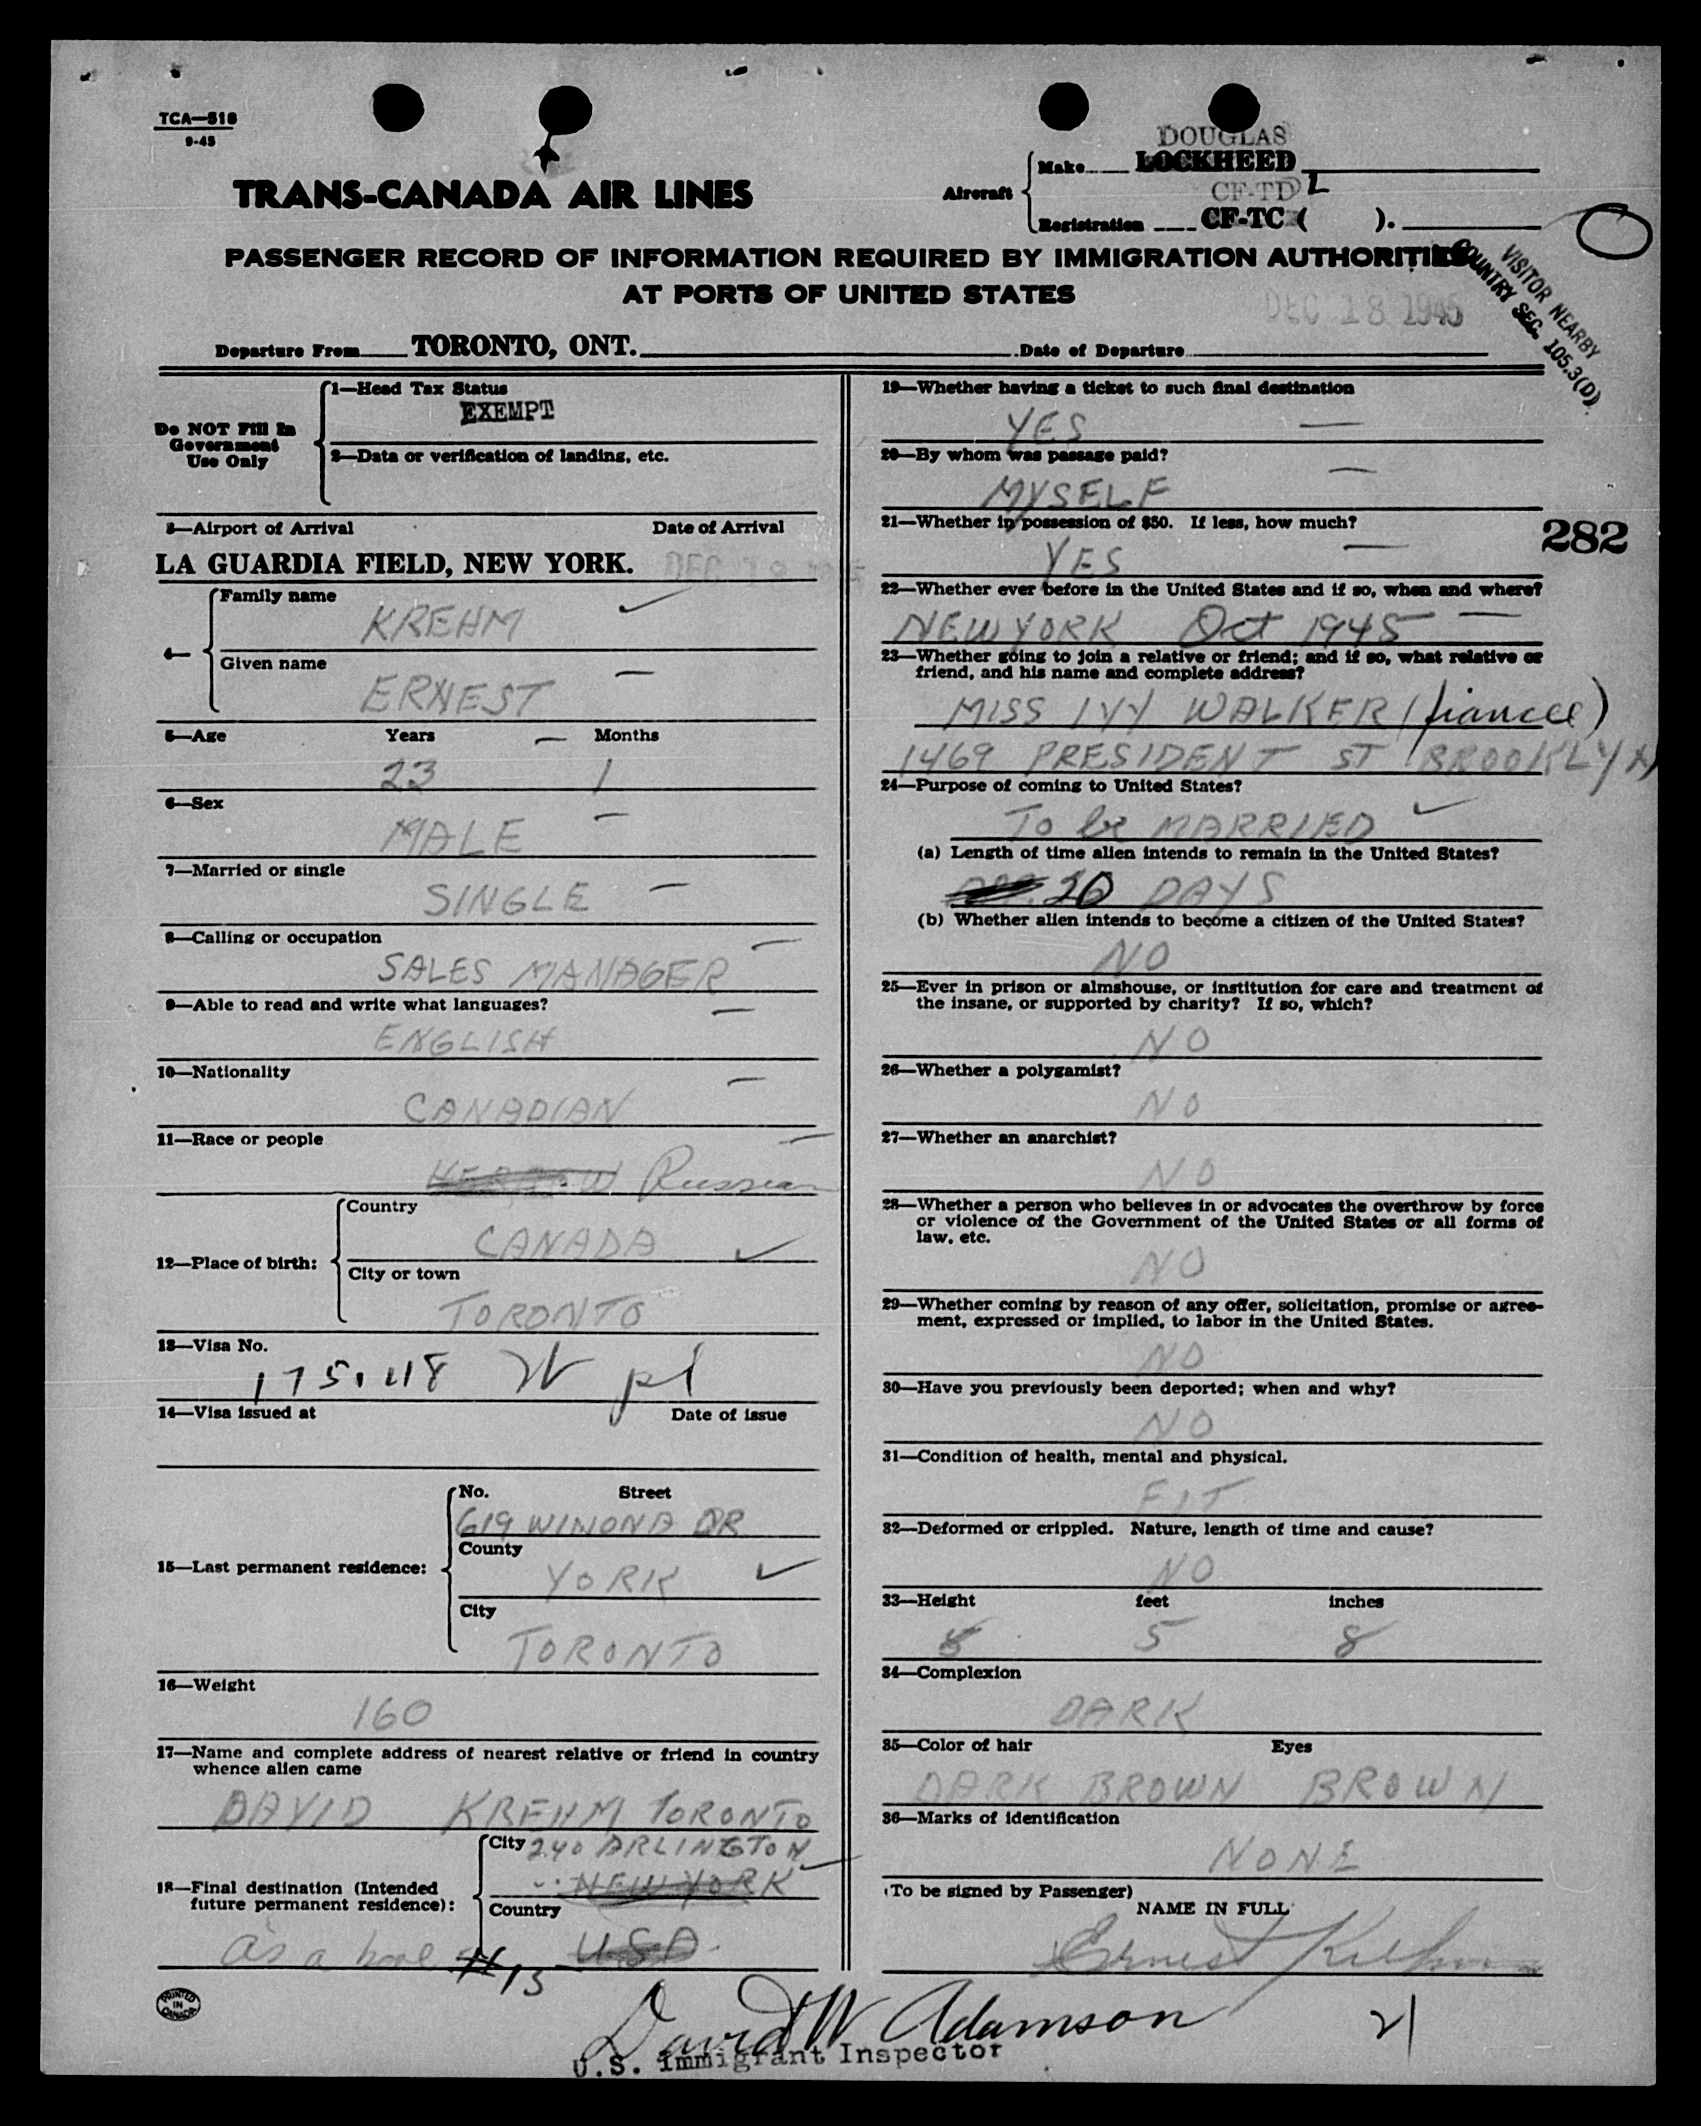 TCA—518
9-45
DOUGLAS
Make LOCKHEED
TRANS-CANADA AIR LINES
Aircraft
CF-TD L
Registration CF-TC ( ).
PASSENGER RECORD OF INFORMATION REQUIRED BY IMMIGRATION AUTHORITIES
AT PORTS OF UNITED STATES
VISITOR NEARBY
COUNTRY SEC. 105.3(D).
DEC 18 1945
Departure From TORONTO, ONT. Date of Departure
Do NOT Fill In
Government
Use Only
1—Head Tax Status
EXEMPT
2—Data or verification of landing, etc.
3—Airport of Arrival Date of Arrival
LA GUARDIA FIELD, NEW YORK. DEC
4—
Family name
KREHM
Given name
ERNEST
5—Age Years Months
23 1
6—Sex
MALE
7—Married or single
SINGLE
8—Calling or occupation
SALES MANAGER
9—Able to read and write what languages?
ENGLISH
10—Nationality
CANADIAN
11—Race or people
HEBREW Russian
12—Place of birth:
Country
CANADA
City or town
TORONTO
13—Visa No.
14—Visa issued at Date of issue
15—Last permanent residence:
No. Street
619 WINONA DR
County
YORK
City
TORONTO
16—Weight
160
17—Name and complete address of nearest relative or friend in country
whence alien came
DAVID KREHM TORONTO
18—Final destination (Intended
future permanent residence):
City 240 ARLINGTON
NEW YORK
Country
as a
USA
#13
PRINTED
IN
CANADA
19—Whether having a ticket to such final destination
YES
20—By whom was passage paid?
MYSELF
21—Whether in possession of $50. If less, how much?
YES
282
22—Whether ever before in the United States and if so, when and where?
NEW YORK Oct 1945
23—Whether going to join a relative or friend; and if so, what relative or
friend, and his name and complete address?
MISS IVY WALKER (fiancee)
1469 PRESIDENT ST BROOKLYN
24—Purpose of coming to United States?
To be MARRIED
(a) Length of time alien intends to remain in the United States?
20 DAYS
(b) Whether alien intends to become a citizen of the United States?
NO
25—Ever in prison or almshouse, or institution for care and treatment of
the insane, or supported by charity? If so, which?
NO
26—Whether a polygamist?
NO
27—Whether an anarchist?
NO
28—Whether a person who believes in or advocates the overthrow by force
or violence of the Government of the United States or all forms of
law, etc.
NO
29—Whether coming by reason of any offer, solicitation, promise or agree-
ment, expressed or implied, to labor in the United States.
NO
30—Have you previously been deported; when and why?
NO
31—Condition of health, mental and physical.
FIT
32—Deformed or crippled. Nature, length of time and cause?
NO
33—Height feet inches
5 8
34—Complexion
DARK
35—Color of hair Eyes
DARK BROWN BROWN
36—Marks of identification
NONE
(To be signed by Passenger)
NAME IN FULL
Ernest Krehm
David W Adamson
U.S. Immigrant Inspector
21